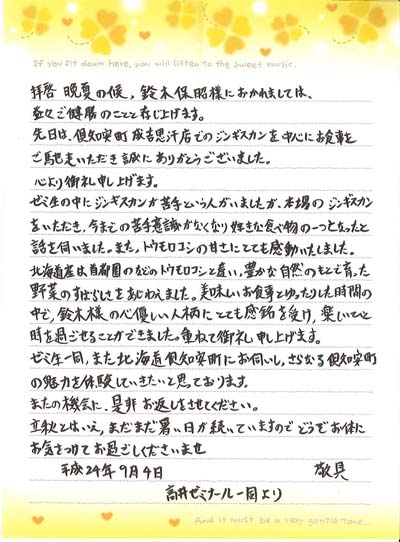 If you sit down here, you will listen to the sweet music.
拝啓 晩夏の候、鈴木保昭様におかれましては、
益々ご健勝のことと存じ上げます。
先日は、倶知安町 成吉思汗店でのジンギスカンを中心にお食事を
ご馳走いただき誠にありがとうございました。
心より御礼申し上げます。
ゼミ生の中にジンギスカンが苦手という人がいましたが、本場のジンギスカン
をいただき、今までの苦手意識がなくなり好きな食べ物の一つとなったと
話を伺いました。また、トウモロコシの甘さにとても感動いたしました。
北海道産は首都圏のなどのトウモロコシと違い、豊かな自然のもとで育った
野菜のすばらしさをあじわえました。美味しいお食事とゆったりした時間の
中で、鈴木様の心優しい人柄にとても感銘を受け、楽しいひと
時を過ごせることができました。重ねて御礼申し上げます。
ゼミ生一同、また北海道倶知安町にお伺いし、さらなる倶知安町
の魅力を体験していきたいと思っております。
またの機会に、是非お返しをさせてください。
立秋とはいえ、まだまだ暑い日が続いていますのでどうぞお体に
お気をつけてお過ごしくださいませ
平成24年9月4日 敬具
高井ゼミナール一同より
And it must be a very gentle tone...